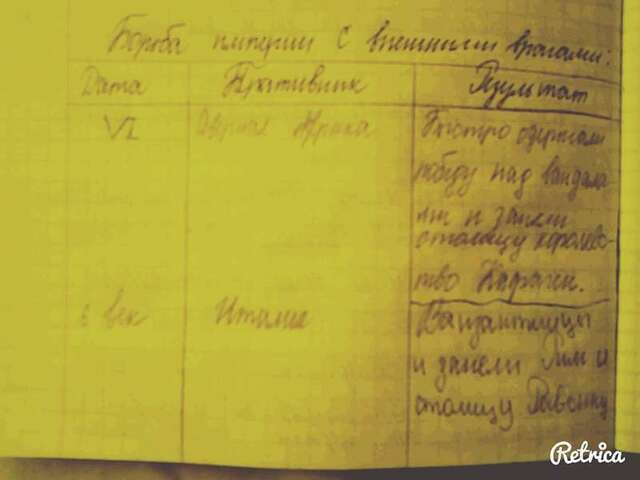 Борьба империи с внешними врагами:
Дата Противник Результат
VI Северная Африка Быстро одержали
победу над вандала
ми и заняли
столицу королев-
ство Карфаген.
6 век Италие
и заняли Рим и
столицу Равенну
Retrica